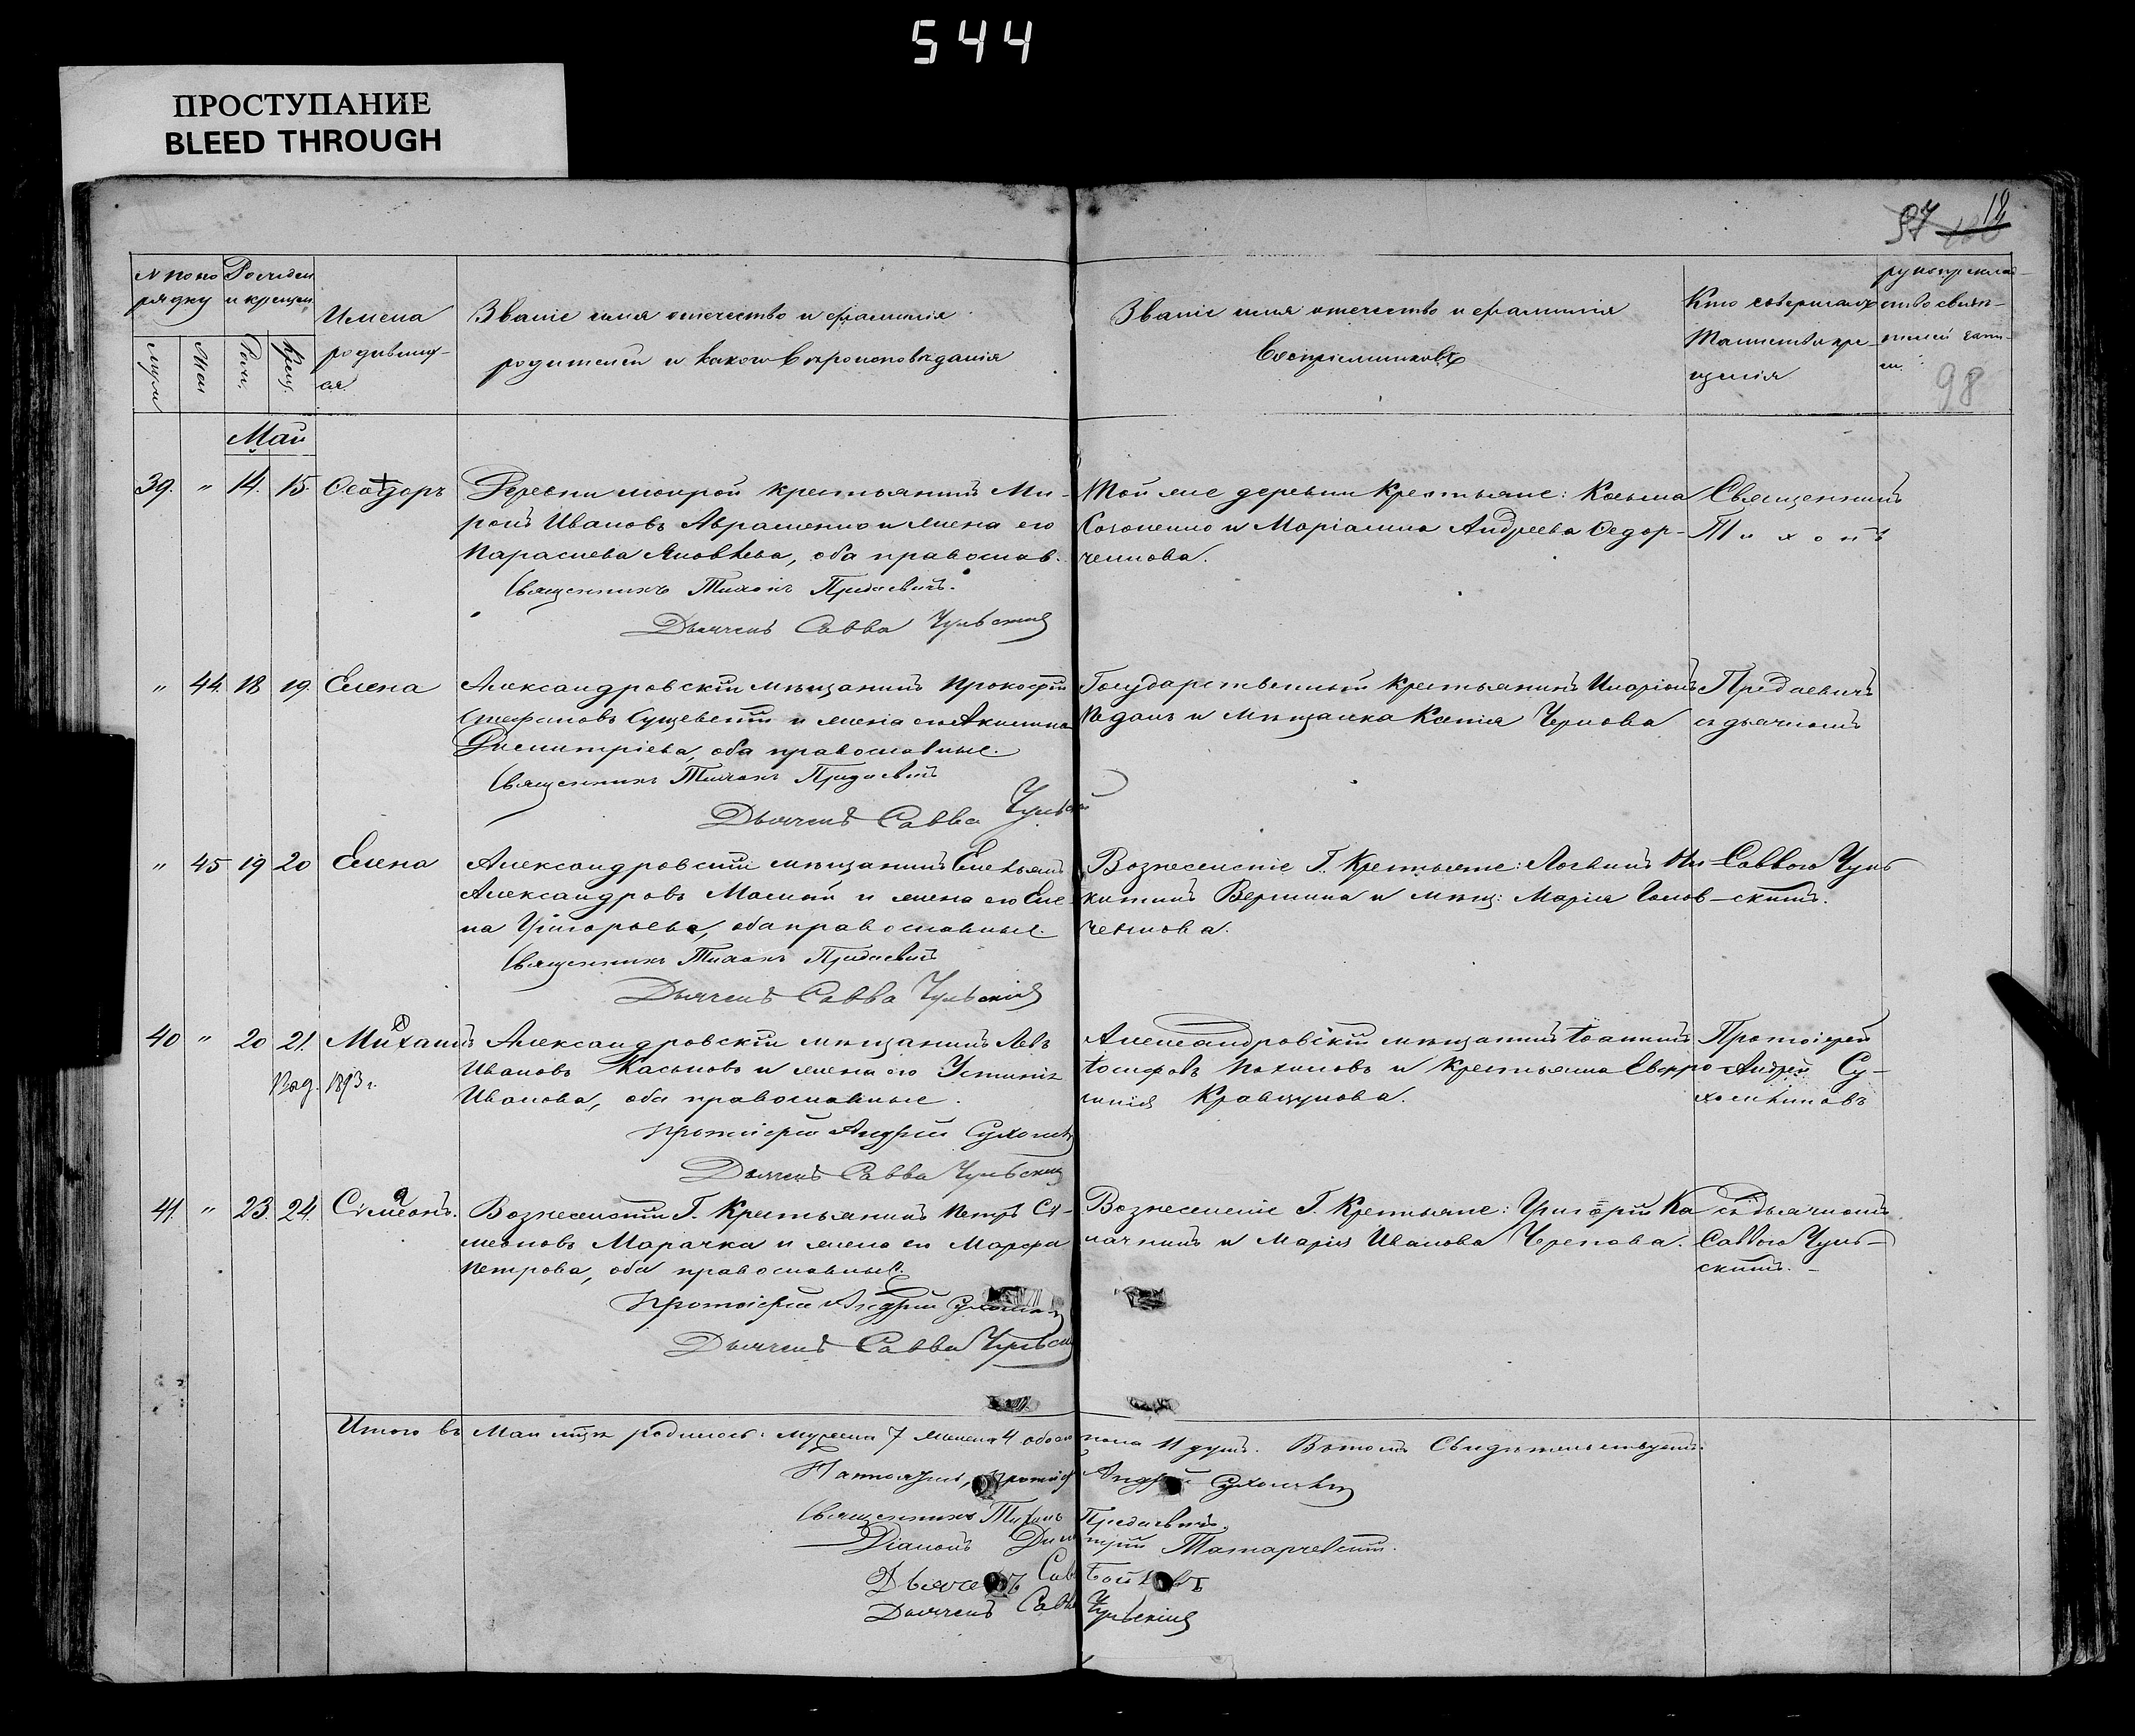 544
ПРОСТУПАНИЕ
BLEED THROUGH
97 12
98
№ по по
рядку
Рожден
и крещен
Имена
родивших-
ся.
Званіе имя отечество и фамилія
родителей и какого вѣроисповѣданія
Званіе имя отечество и фамилія
воспріемниковъ
Кто совершалъ
таинство кре-
щенія
рукоприклад-
ство свидѣ-
телей
Муж
Жен
Рож.
Крещ.
Май
39. " 14. 15. Ѳеодоръ
Деревни мокрой крестьянинъ Ми-
ронъ Ивановъ Авраменко и жена его
Параскева Яковлева, оба православ.
Священникъ Тихонъ Придаевичъ.
Дьячекъ Савва Чульскій
Той же деревни крестьяне: Косьма
и Маріамна Андреева Ѳедор-
ченкова.
Священникъ
Тихонъ
" 44. 18 19. Елена
Александровскій мѣщанинъ Прокофій
Стефановъ Сущевскій и жена его Акилина
Димитріева, оба православные.
Священникъ Тихонъ Придаевичъ
Дьячекъ Савва Чульскій
Государственный крестьянинъ Иларіонъ
и мѣщанка Ксенія Чернова
Придаевичъ
съ дьячкомъ
" 45 19 20 Елена
Александровскій мѣщанинъ Емельянъ
Александровъ Малый и жена его Еле-
на Григорьева, оба православные.
Священникъ Тихонъ Придаевичъ
Дьячекъ Савва Чульскій
Вознесенскіе Г. Крестьяне: Логвинъ Ни-
китинъ Вершина и мѣщ: Марія Голов-
ченкова.
Саввою Чуль
скимъ.
40 " 20 21. Михаилъ
1893 г.
Александровскій мѣщанинъ Левъ
Ивановъ Касьновъ и жена его Устинія
Иванова, оба православные.
Протоіерей Андрей Сухомлин
Дьячекъ Савва Чульскій
Александровскій мѣщанинъ Іоаннъ
Іосифовъ Пахиловъ и Крестьянка Евфро-
синія Кравцунова.
Протоіерей
Андрей Су-
хомлиновъ
41. " 23. 24. Сімеонъ.
Вознесенскій Г. Крестьянинъ Петръ Сі-
меоновъ Марачка и жена его Марфа
Петрова, оба православные.
Протоіерей Андрей Сухомлин
Дьячекъ Савва Чульскій
Вознесенскіе Г. Крестьяне: Григорій Ка
лачникъ и Марія Иванова Черепова.
съ дьячкомъ
Саввою Чуль-
скимъ. -
Итого въ Маѣ мцѣ родилось: мужеска 7 женска 4 обоего пола 11 душъ. Въ томъ свидѣтельствуемъ:
протоіер Андрей Сухомлин
Священникъ Тихонъ Придаевичъ.
Діаконъ Димитрій Татаревскій.
Дьячекъ Савва Бойковъ
Дьячекъ Савва Чульскій